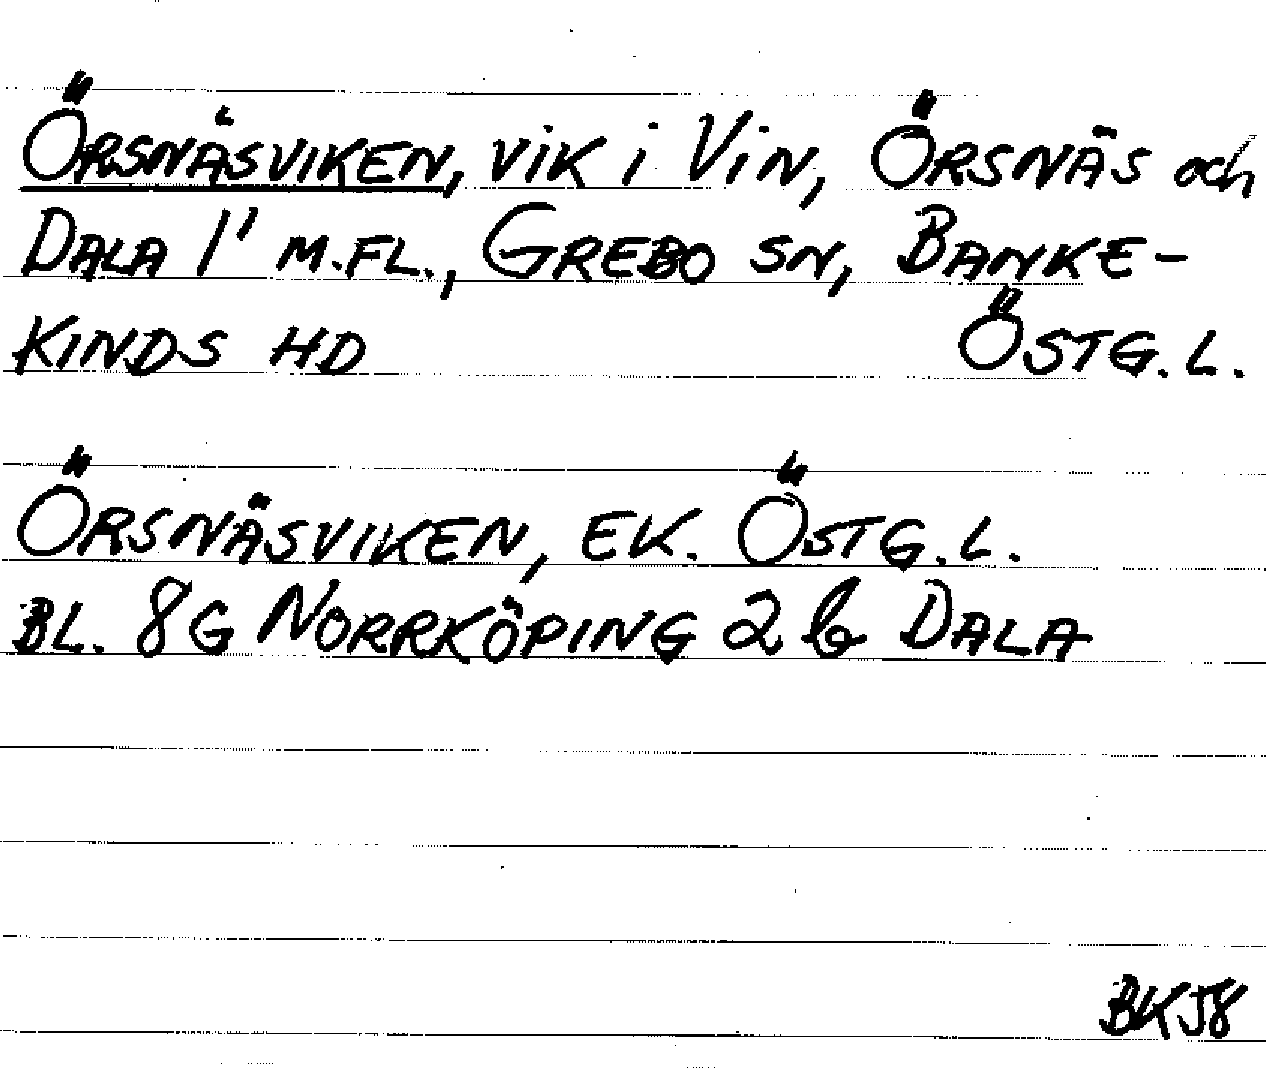 ÖRSNÄSVIKEN, VIK i ViN, ÖRSNÄS och
DALA 1' M.FL., GREBO SN, BANKE-
KINDS HD ÖSTG.L.
ÖRSNÄSVIKEN, EK. ÖSTG.L.
BL. 8G NORRKÖPING 2 b DALA
BK58